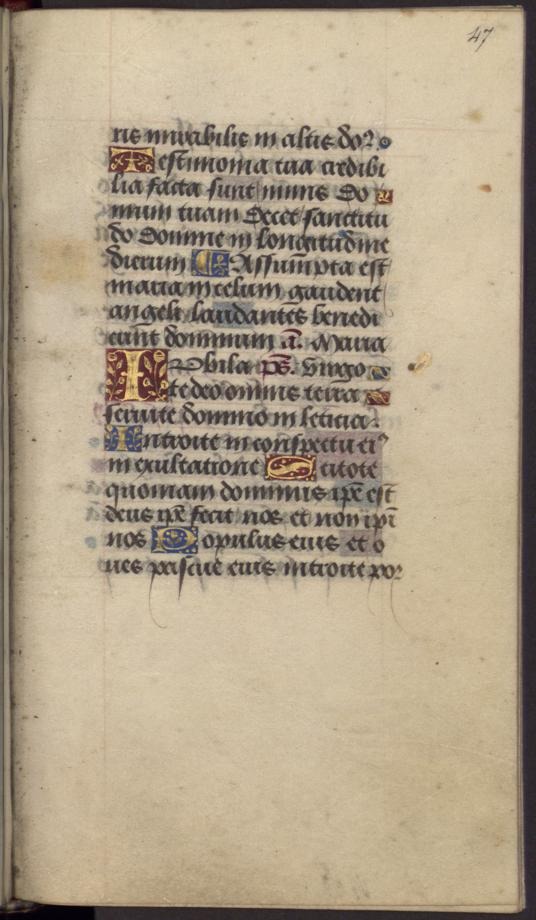 47
ris mirabilis in altis do²
Testimonia tua credibi
lia facta sunt nimis Do
mum tuam Decet sanctitu
do Domine in longitudine
dierum Assumpta est
maria in celum gaudent
angeli laudantes benedi
cunt dominum a. Maria
Iubila ps. virgo
te deo omnis terra
seruite domino in leticia.
Introite in conspectu ei⁹
in exultatione Scitote
quoniam dominus ipe est
deus ipe fecit nos et non ipi
nos Populus eius et o
ues pascue eius introite por